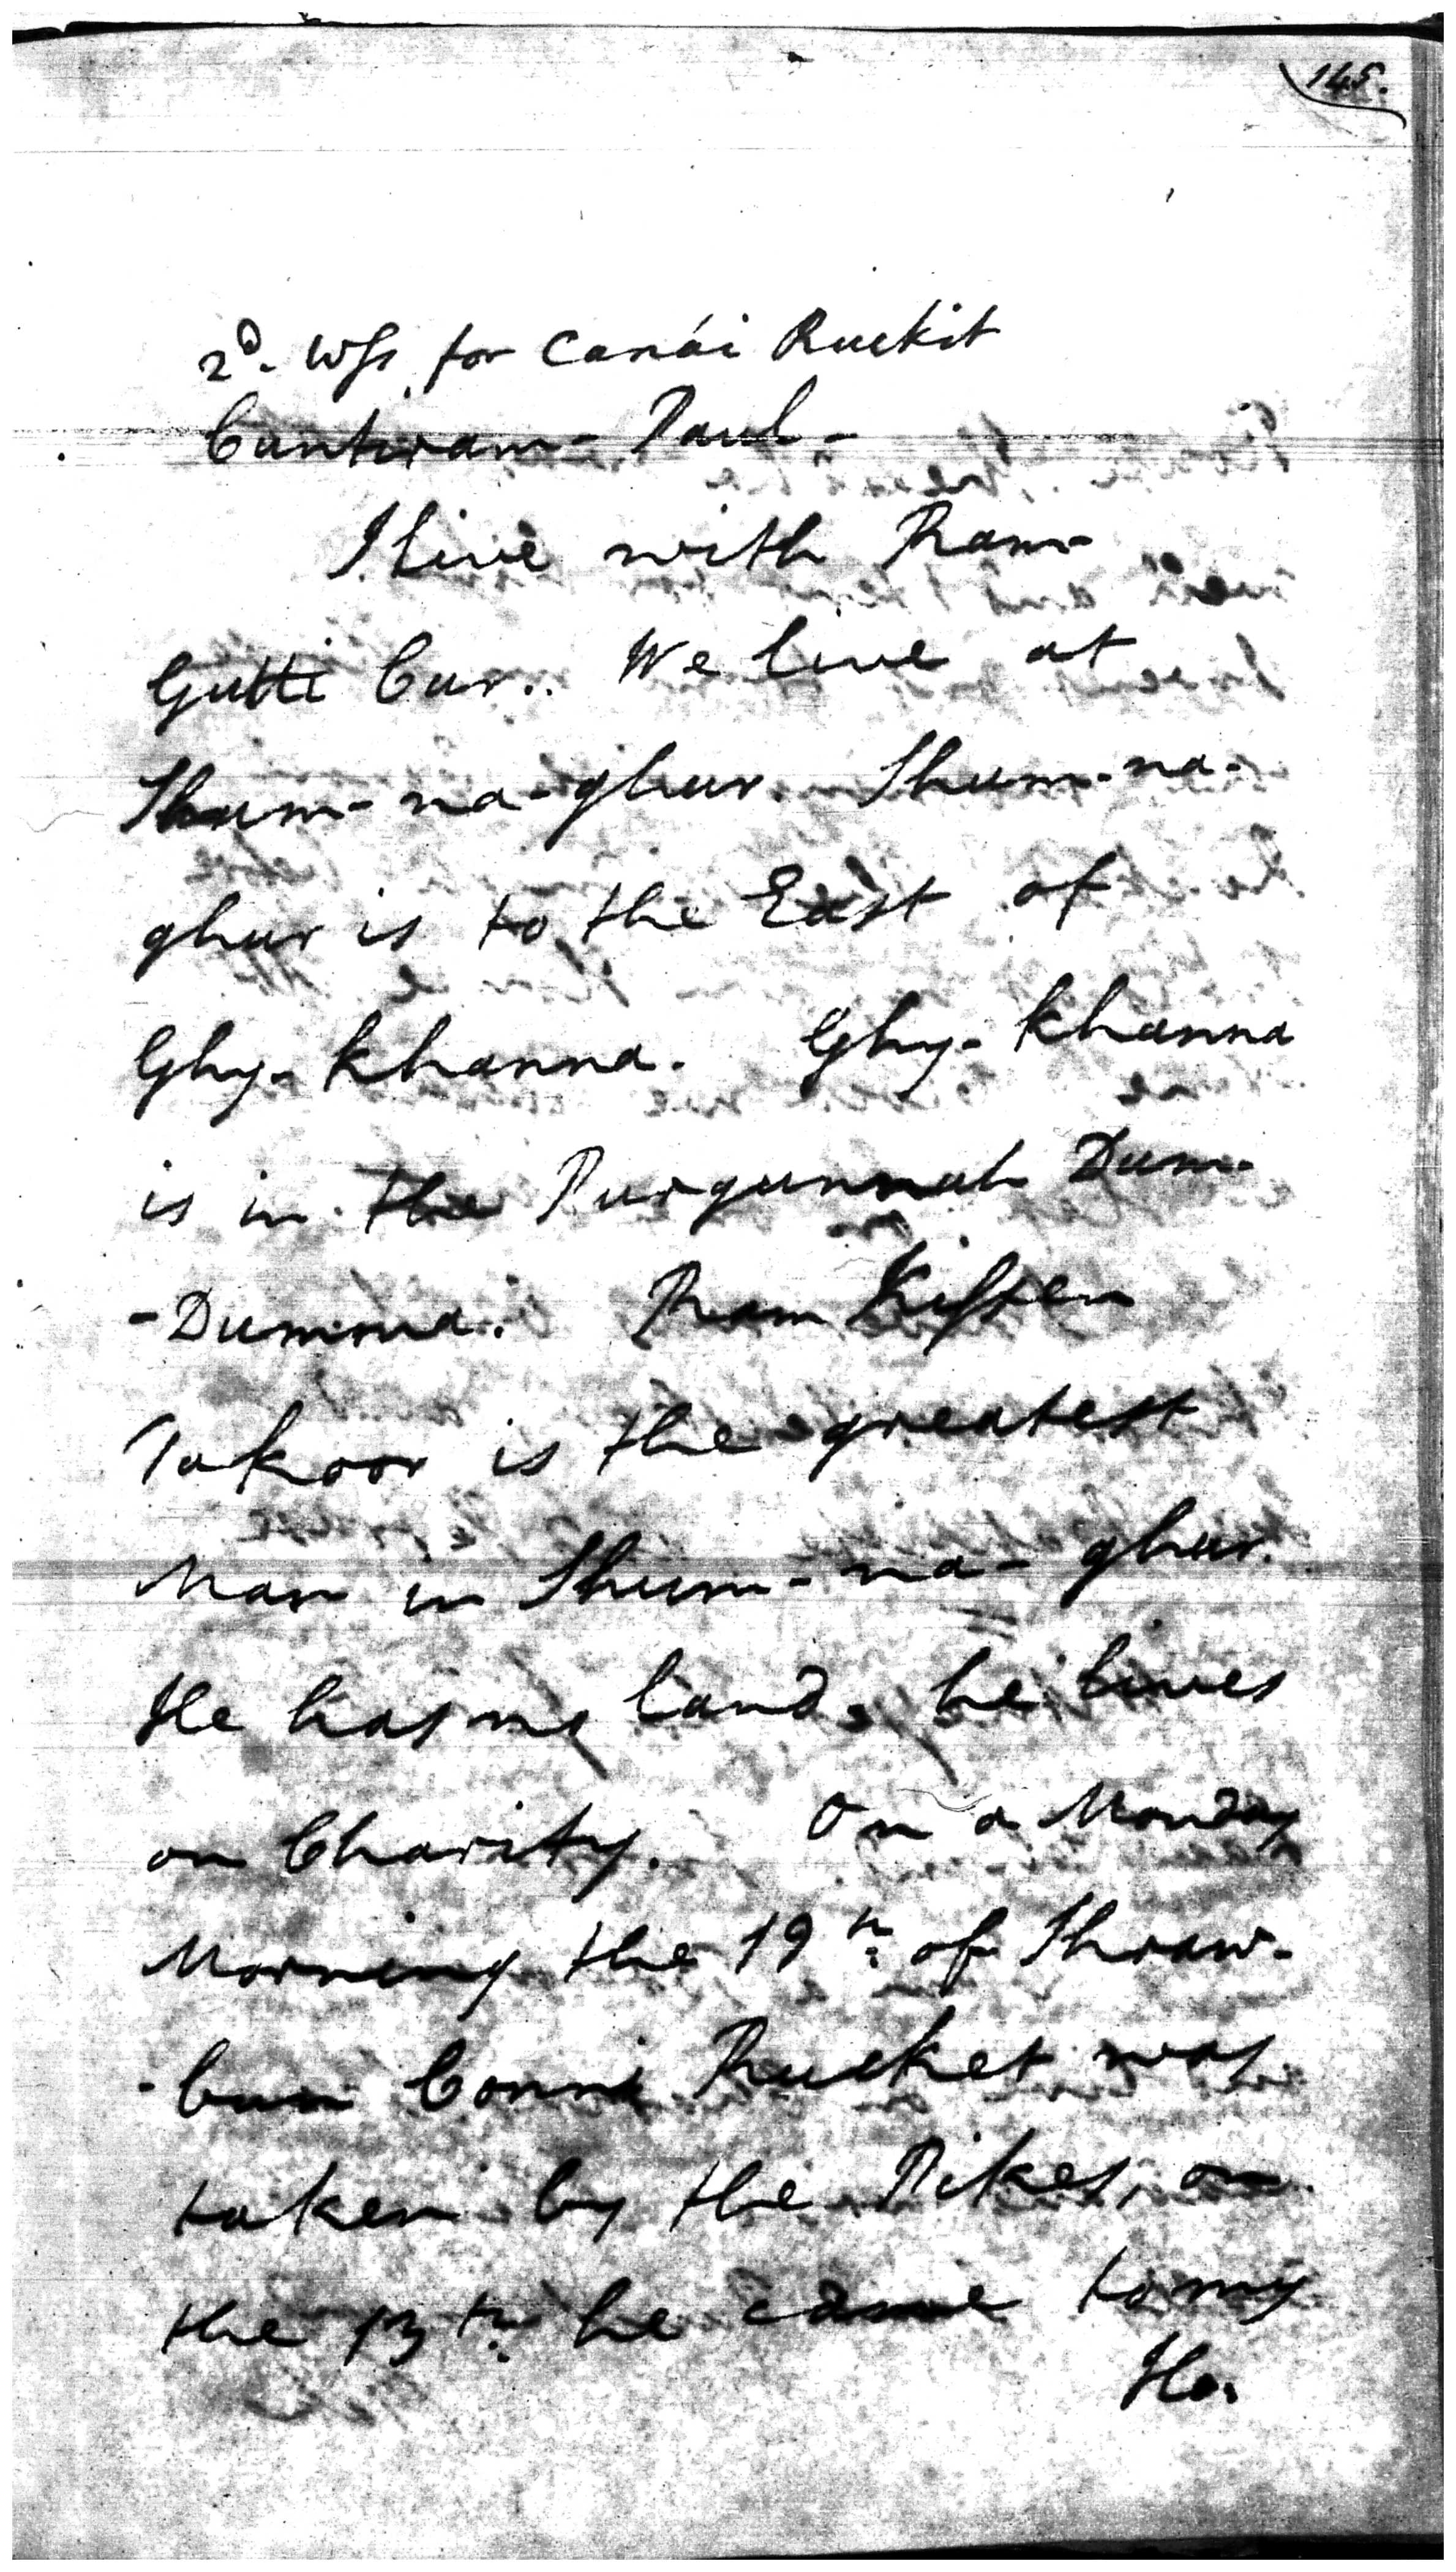 145.
2d. Wss for Canái Ruckit
Cantiram - Paul -
I live with Ram-
Gutti Cur.. We live at
Shum-na-ghur. Shum-na-
ghur is to the East of
Ghy-Khanna. Ghy-Khanna
is in the Purgunnah Dum-
-Dumma. Ram Kissen
Takoor is the greatest
Man in Shum-na-ghur.
He has no land, he lives
on Charity. On a Monday
Morning the 19th of Shraw-
-bun Conni Rucket was
taken by the Pikes, on
the 13th he came to my
Ho.